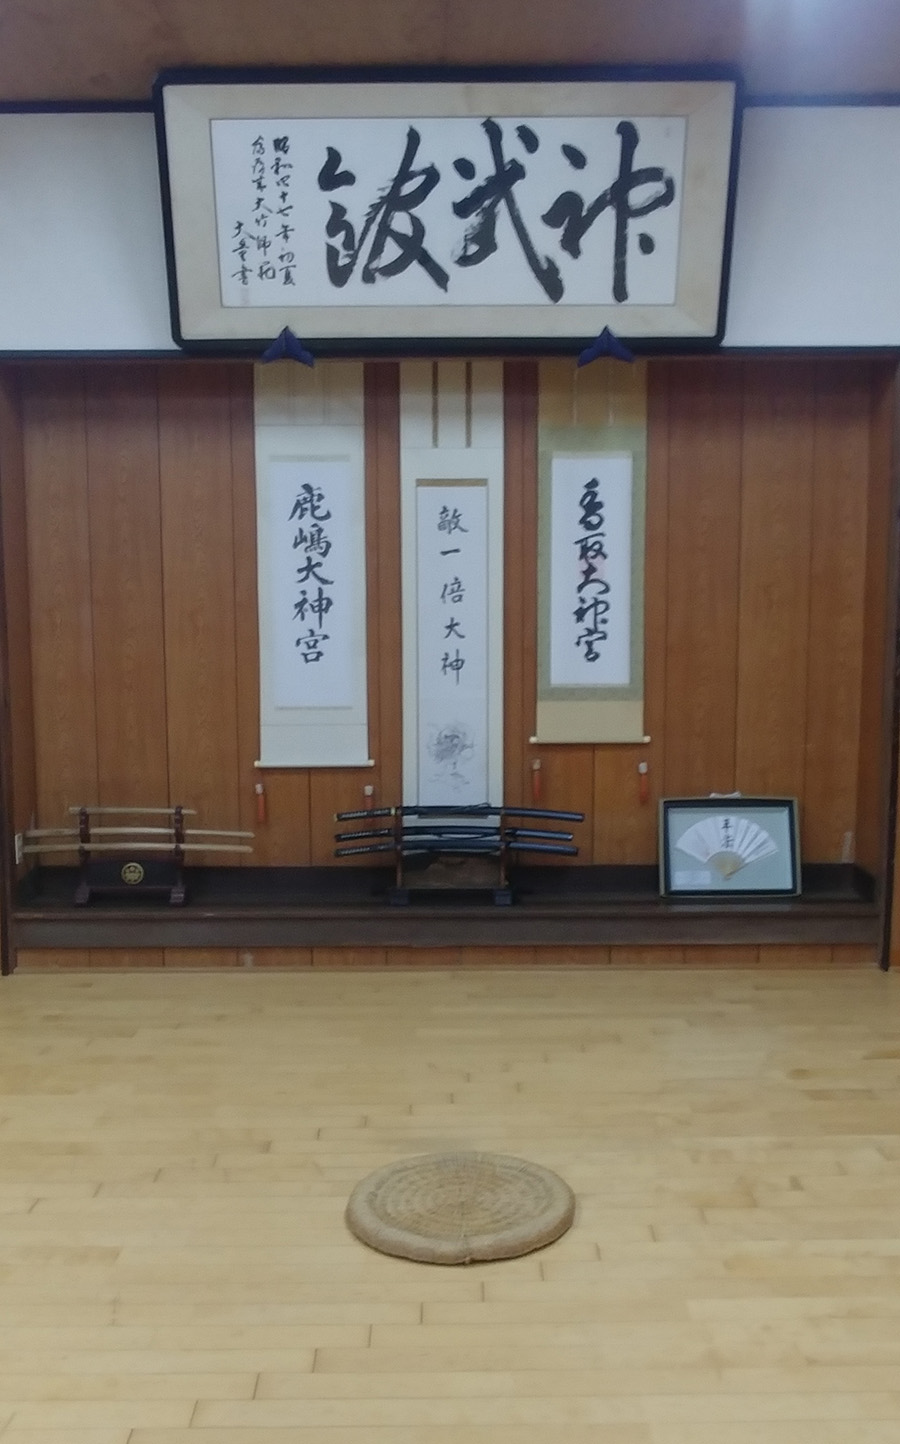 神武館
昭和四十七年初夏
為府末大竹師範
大豊書
香取大神宮
敵一倍大神
鹿嶋大神宮